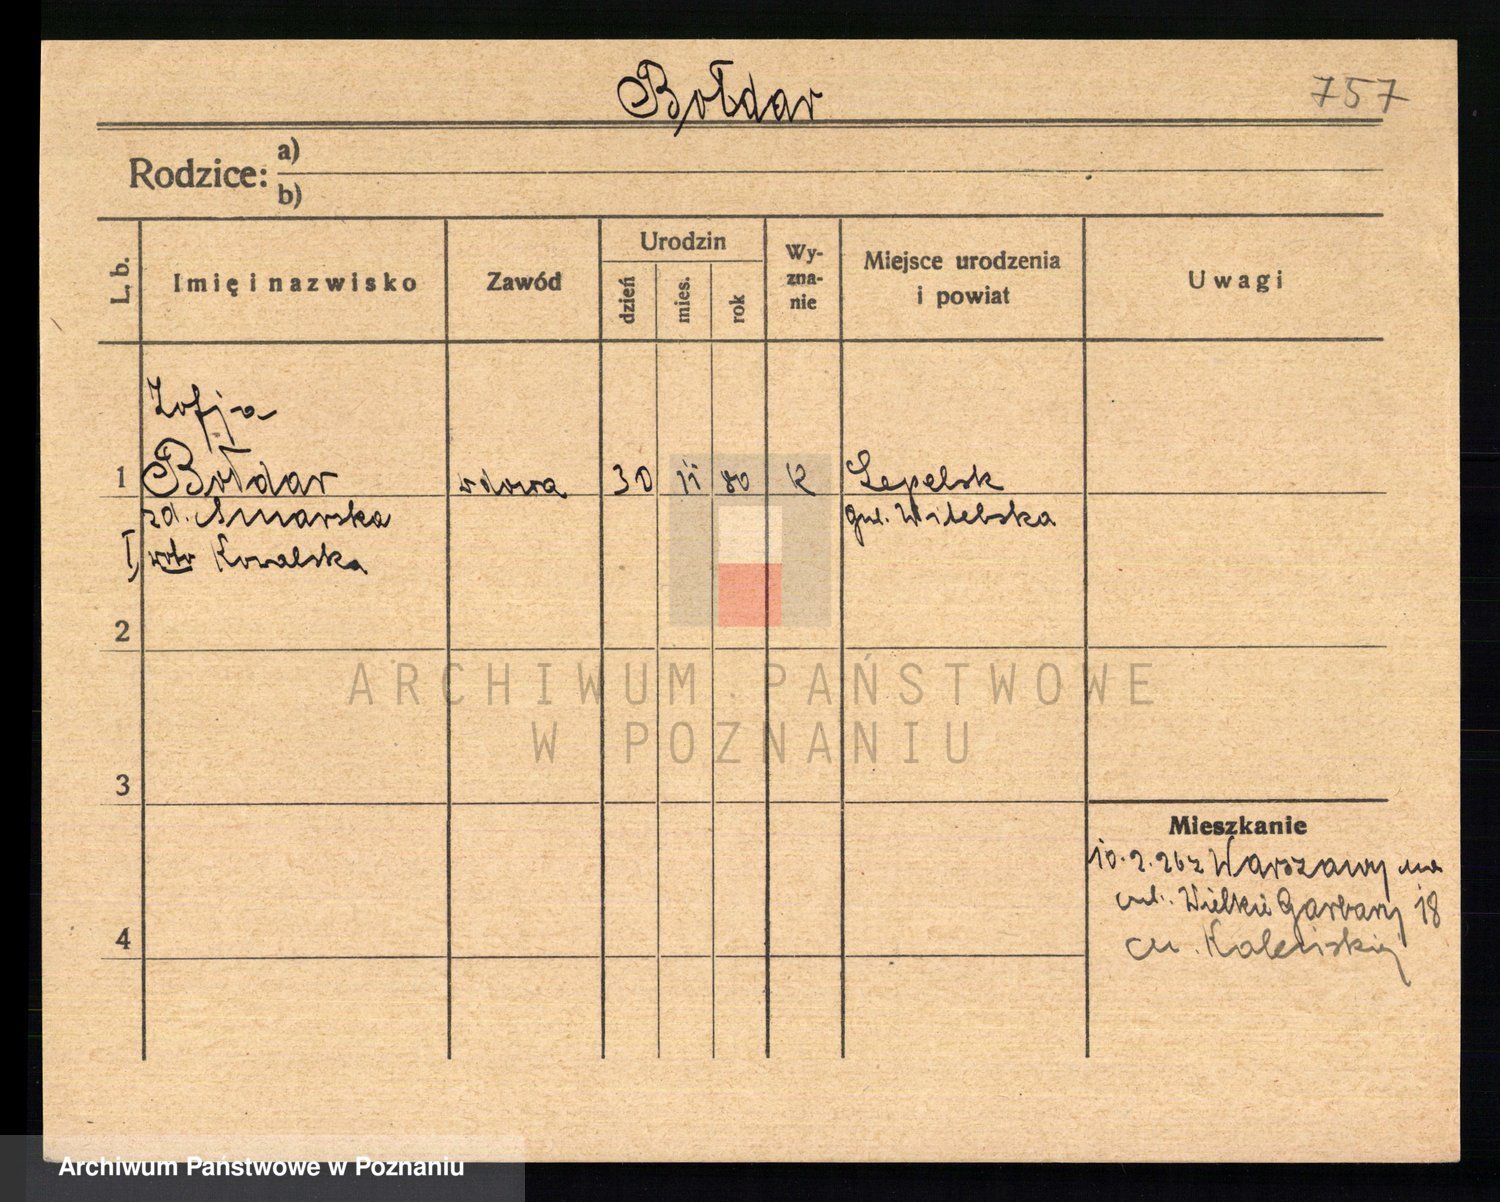 Bołdar
757
Rodzice: a)
b)
L. b.
Imię i nazwisko
Zawód
Urodzin
dzień
mies.
rok
Wy-
zna-
nie
Miejsce urodzenia
i powiat
Uwagi
Zofja
1 Bołdar wdowa 30 11 80 K Lepelsk
zd. gub. Witebska
I voto Kowalska
2
3
4
Mieszkanie
10.2.26 z Warszawy na
ul. Wielkie Garbary 18
ARCHIWUM PAŃSTWOWE
W POZNANIU
Archiwum Państwowe w Poznaniu